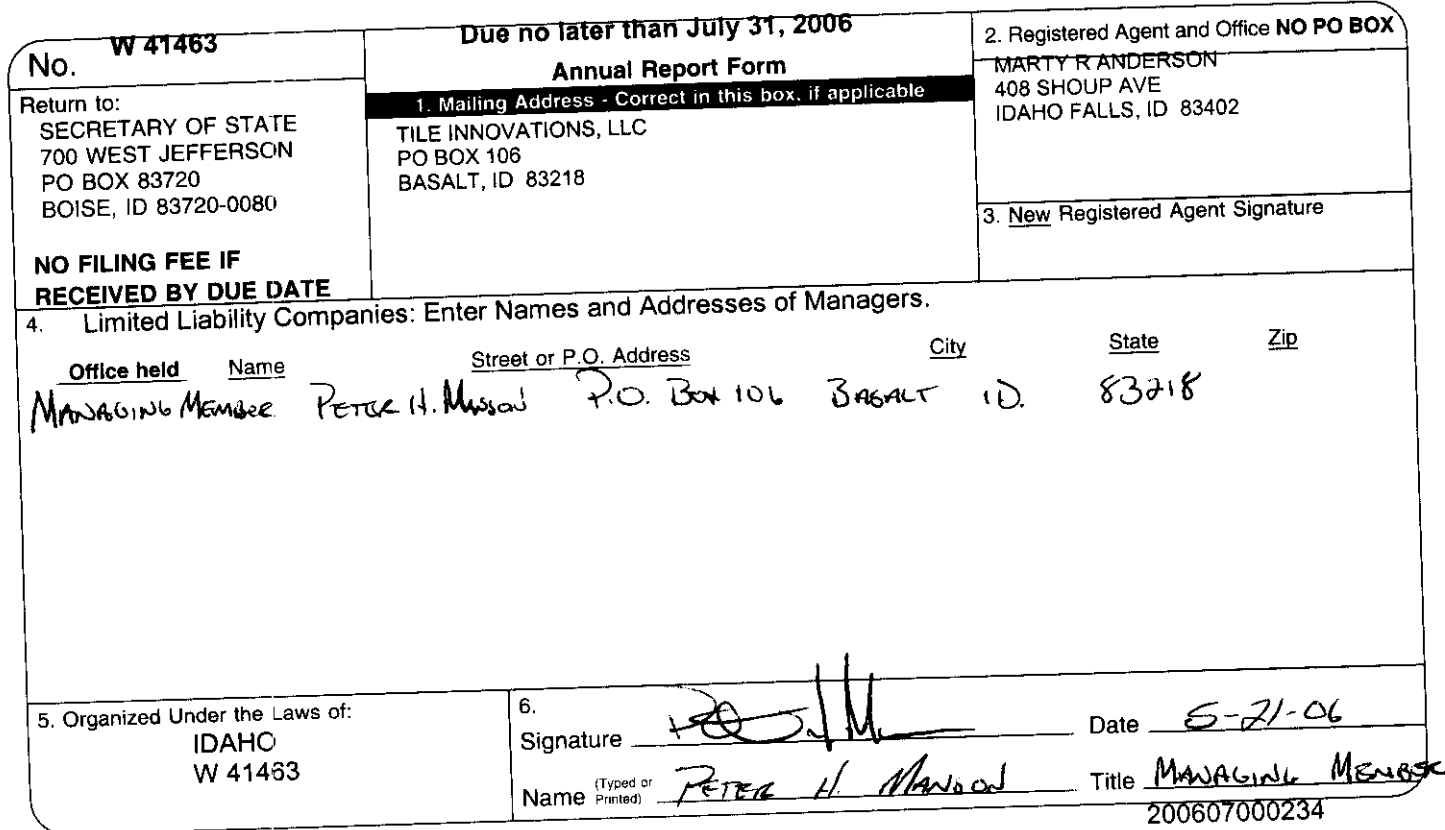 No. W 41463
Return to:
SECRETARY OF STATE
700 WEST JEFFERSON
PO BOX 83720
BOISE, ID 83720-0080
NO FILING FEE IF
RECEIVED BY DUE DATE
Due no later than July 31, 2006
Annual Report Form
1. Mailing Address - Correct in this box, if applicable
TILE INNOVATIONS, LLC
PO BOX 106
BASALT, ID 83218
2. Registered Agent and Office NO PO BOX
MARTY R ANDERSON
408 SHOUP AVE
IDAHO FALLS, ID 83402
3. New Registered Agent Signature
4. Limited Liability Companies: Enter Names and Addresses of Managers.
Office held Name Street or P.O. Address City State Zip
MANAGING MEMBER PETER H. P.O. BOX 106 BASALT ID. 83218
5. Organized Under the Laws of:
IDAHO
W 41463
6.
Signature Date 5-21-06
Name (Typed or Printed) PETER H. Title MANAGING MEMBER
200607000234